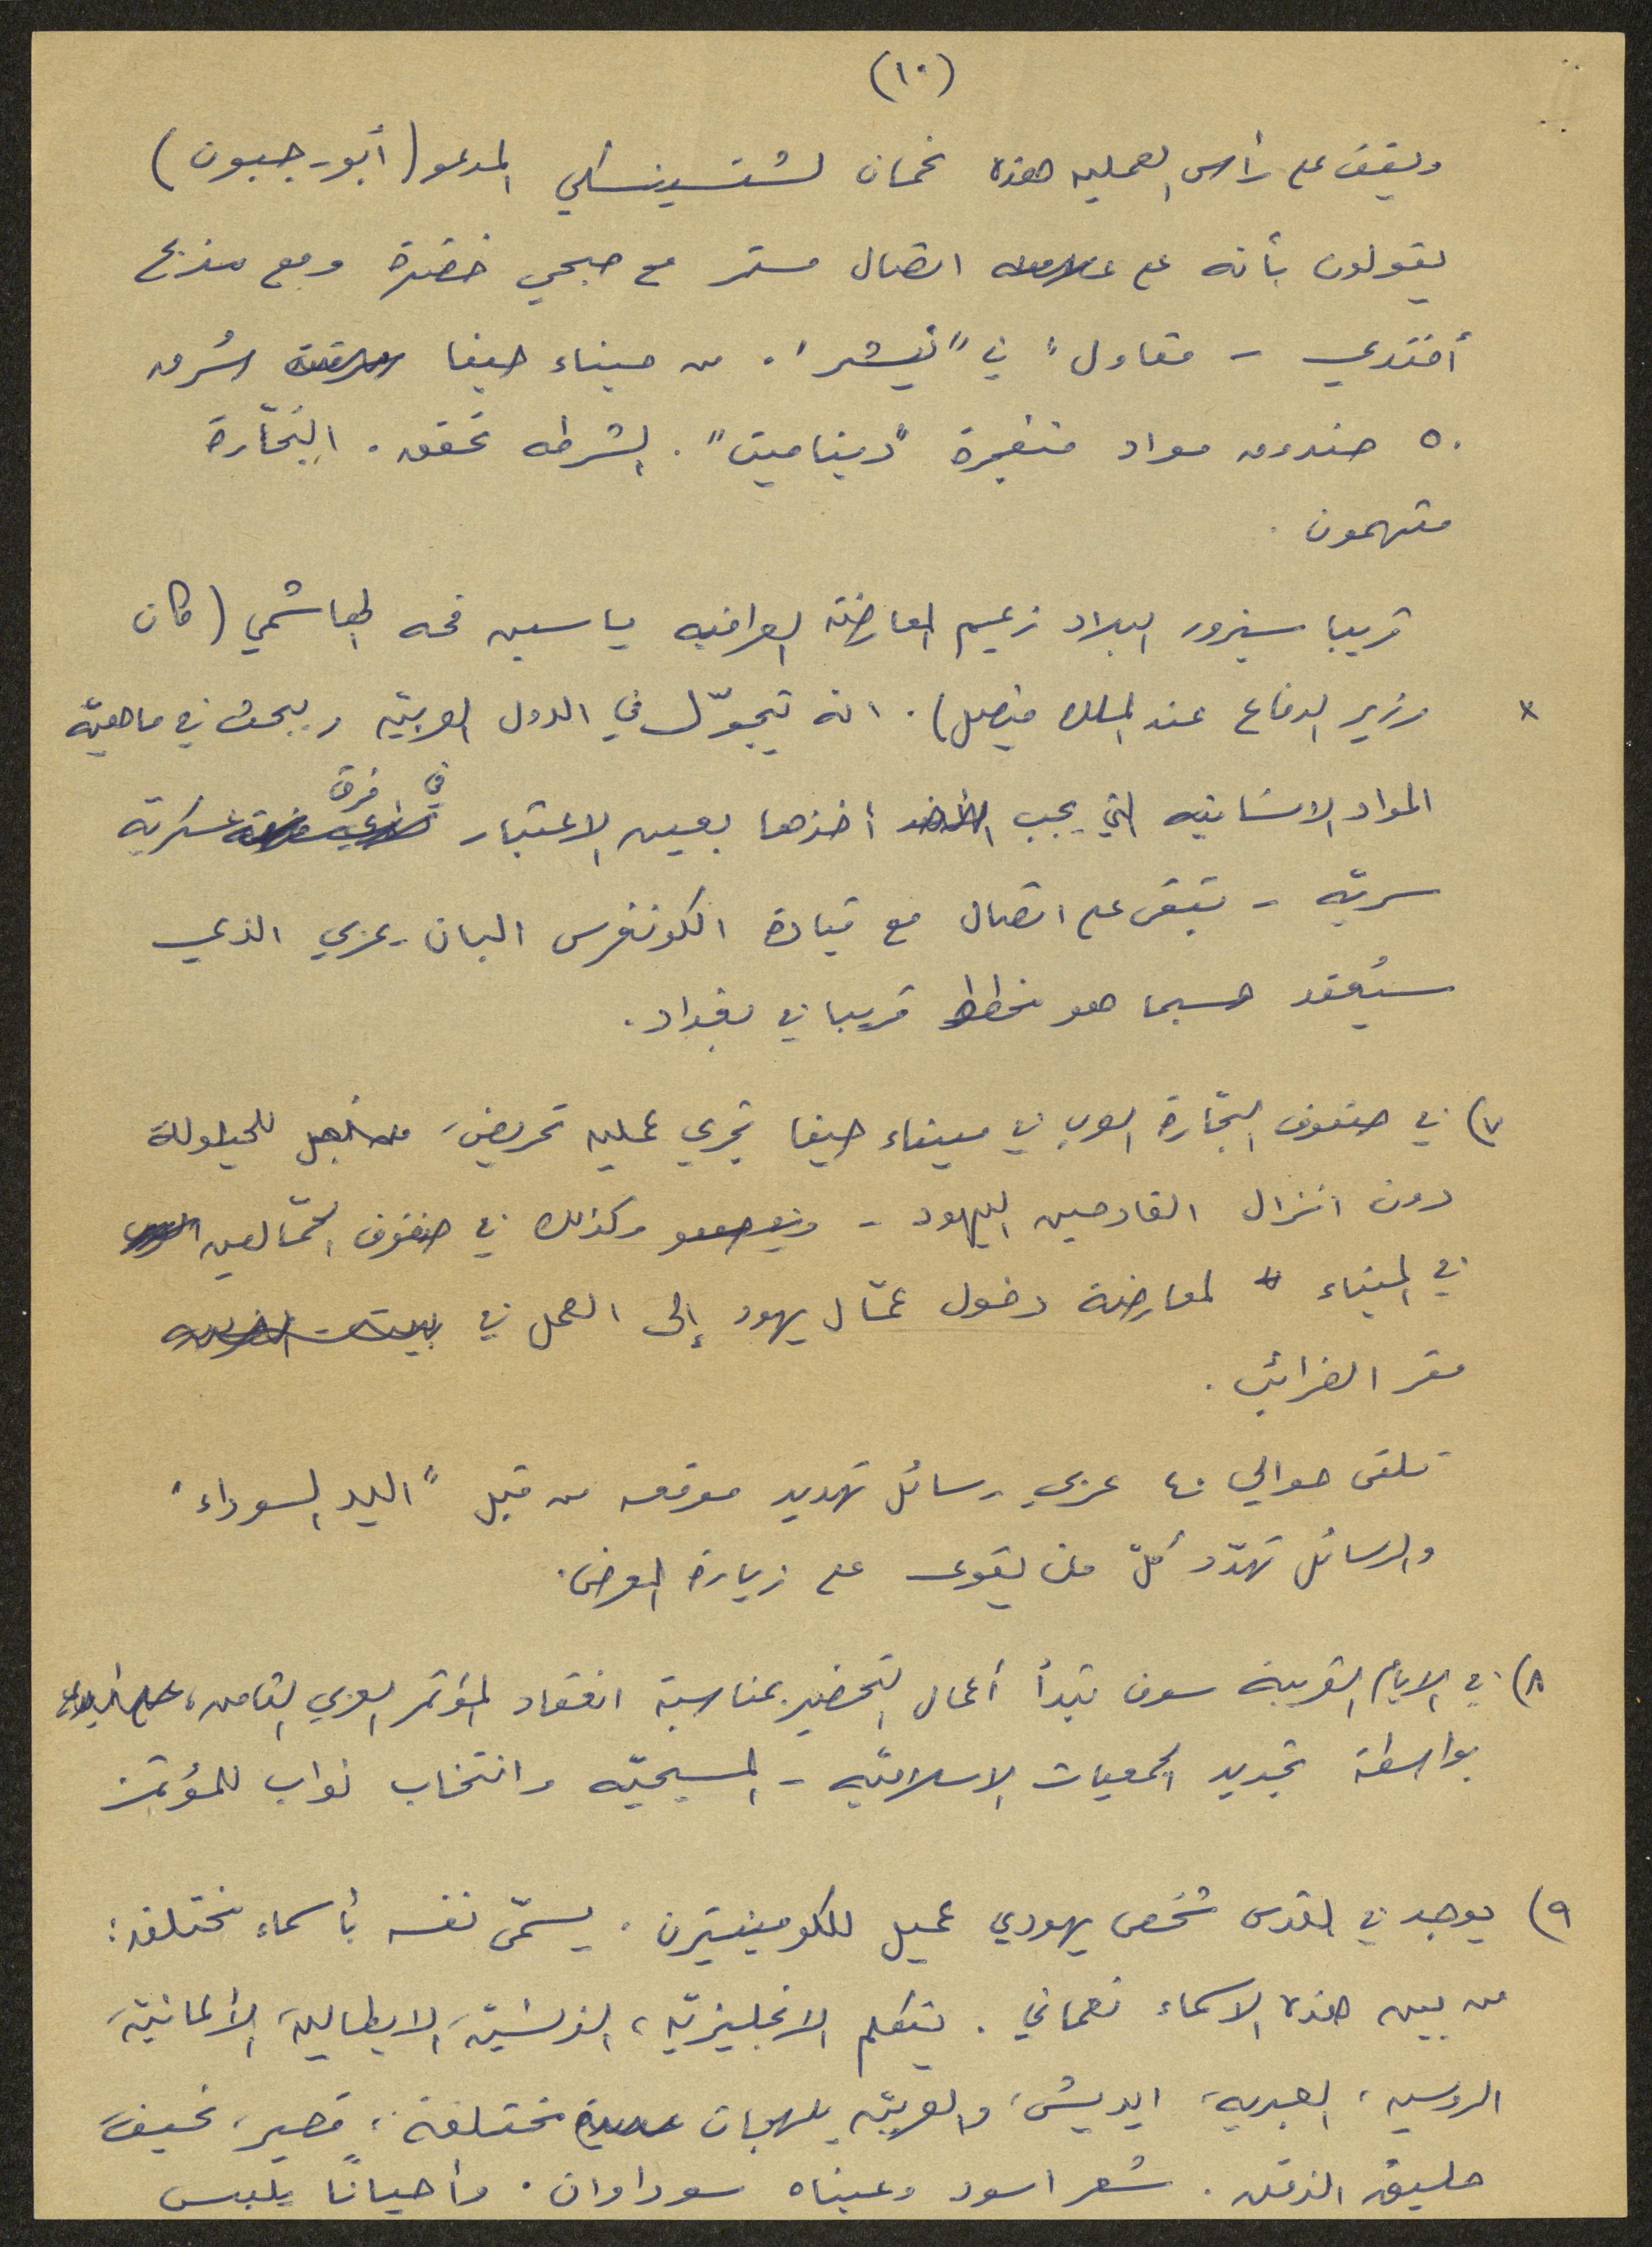 (١٠)
ويقف على رأس العمليه هذه نحمان لشتسينسكي المدعو (أبو-جبون)
يقولون بأنه على اتصال مستمر مع صبحي خضرة ومع
أفندي - مقاول" في "نيشر". من ميناء حيفا سُرق
٥٠ صندوق مواد متفجرة "ديناميت". الشرطه تحقق. البَحّارة
متهمون.
قريبا سيزور البلاد زعيم المعارضة العراقيه ياسين الهاشمي (كان
x وزير الدفاع عند الملك فيصل). انه يتجوّل في الدول العربيّه ويبحث في ماهيّه
المواد الانسانيه التي يجب أخذها بعين الاعتبار في فرق عسكريه
سريّه - تبقى على اتصال مع قيادة الكونفرس البان-عربي الذي
سيُعقد حسبما هو مخطط قريبا في بغداد.
٧) في صفوف البحّارة العرب في ميناء حيفا تجري عمليه تحريض، للحيلولة
دون انزال القادمين اليهود - وكذلك في صفوف الحمّالين
في الميناء لمعارضة دخول عمّال يهود إلى العمل في
مقر الضرائب.
تلقى حوالي ٤٠ عربي رسائل تهديد موقعه من قبل "اليد السوداء"
والرسائل تهدّد كلّ من يقوى على زيارة المعرض.
٨) في الايام القريبة سوف تبدأ أعمال التحضير بمناسبة انعقاد المؤتمر العربي الثامن،
بواسطة تجديد الجمعيات الاسلاميّه - المسيحيّه وانتخاب نواب للمؤتمر
٩) يوجد في القدس شخص يهودي عميل للكومينتيرن. يسمّى نفسه بأسماء مختلفه:
من بين هذه الاسماء نعماني. يتكلم الانجليزيّه، الفرنسيّة، الايطالية، الألمانيّة،
الروسيه، العبريه، ايديش، والعربيّه بلهجات مختلفة، قصير، نحيف،
حليق الذقن. شعر اسود وعيناه سوداوان. وأحيانًا يلبس